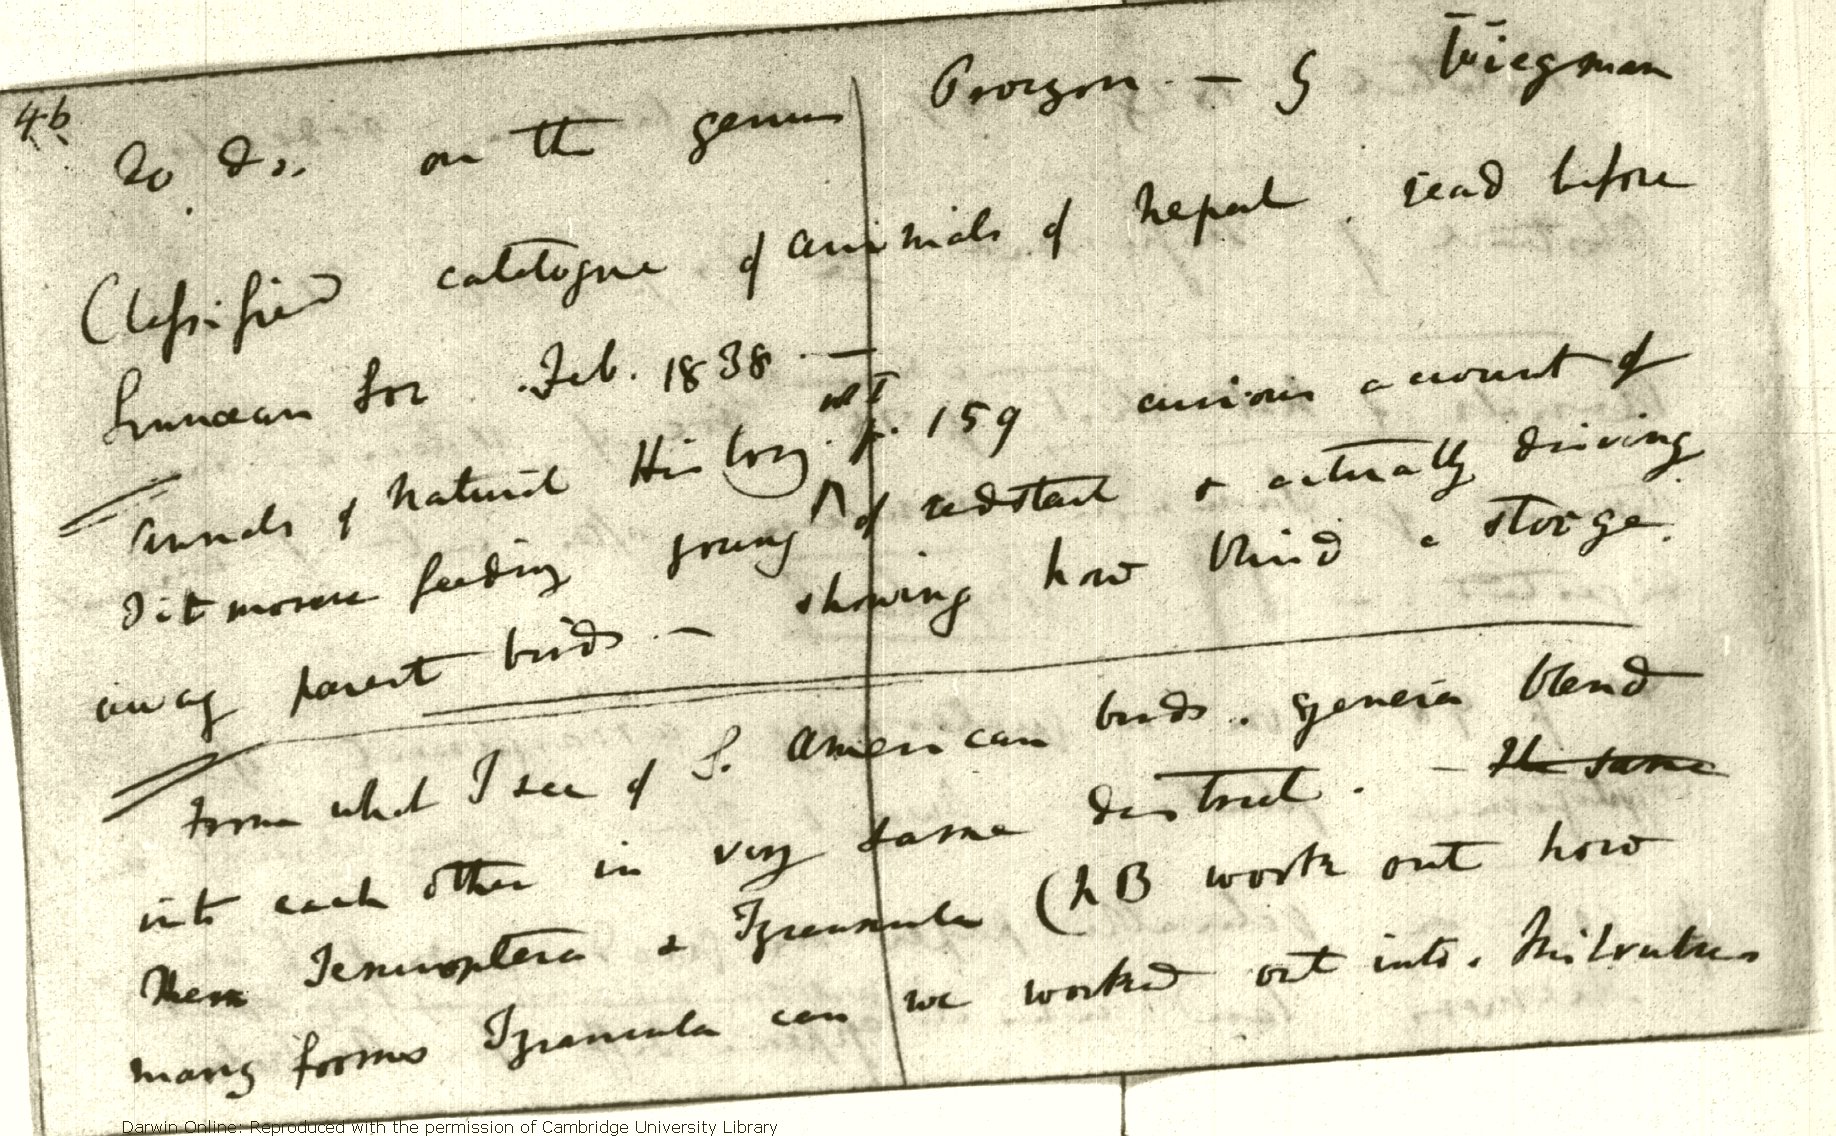 46
do do. on the genus Procyon. — § Wiegman
Classified catalogue of animals of Nepal. read before
Linnæan Soc. Feb. 1838. —
Annals of Natural History. p. 159 Vol I curious account of
titmouse feeding young ^ of redstart & actually driving
away parent birds. — showing how blind a storge.
From what I see of S. American birds. genera blend
into each other in very same district. — the same
These & Tyrannula (NB work out how
many forms Tyrannula can we worked out into.
Darwin Online: Reproduced with the permission of Cambridge University Library